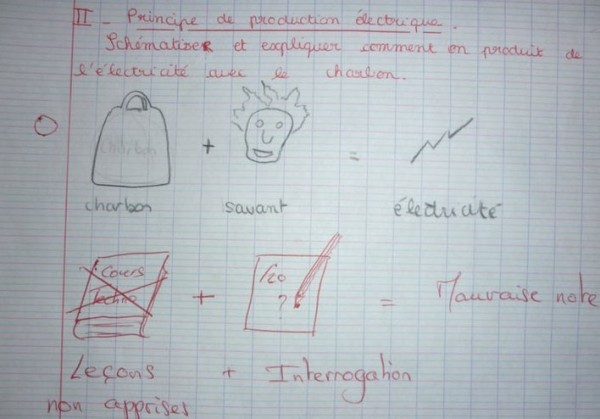 II - Principe de production électrique.
Schématiser et expliquer comment on produit de
l'électricité avec le charbon.
Charbon
+ =
charbon savant électricité
Cours
Techno
/20
?
+ = Mauvaise note
Leçons + Interrogation
non apprises